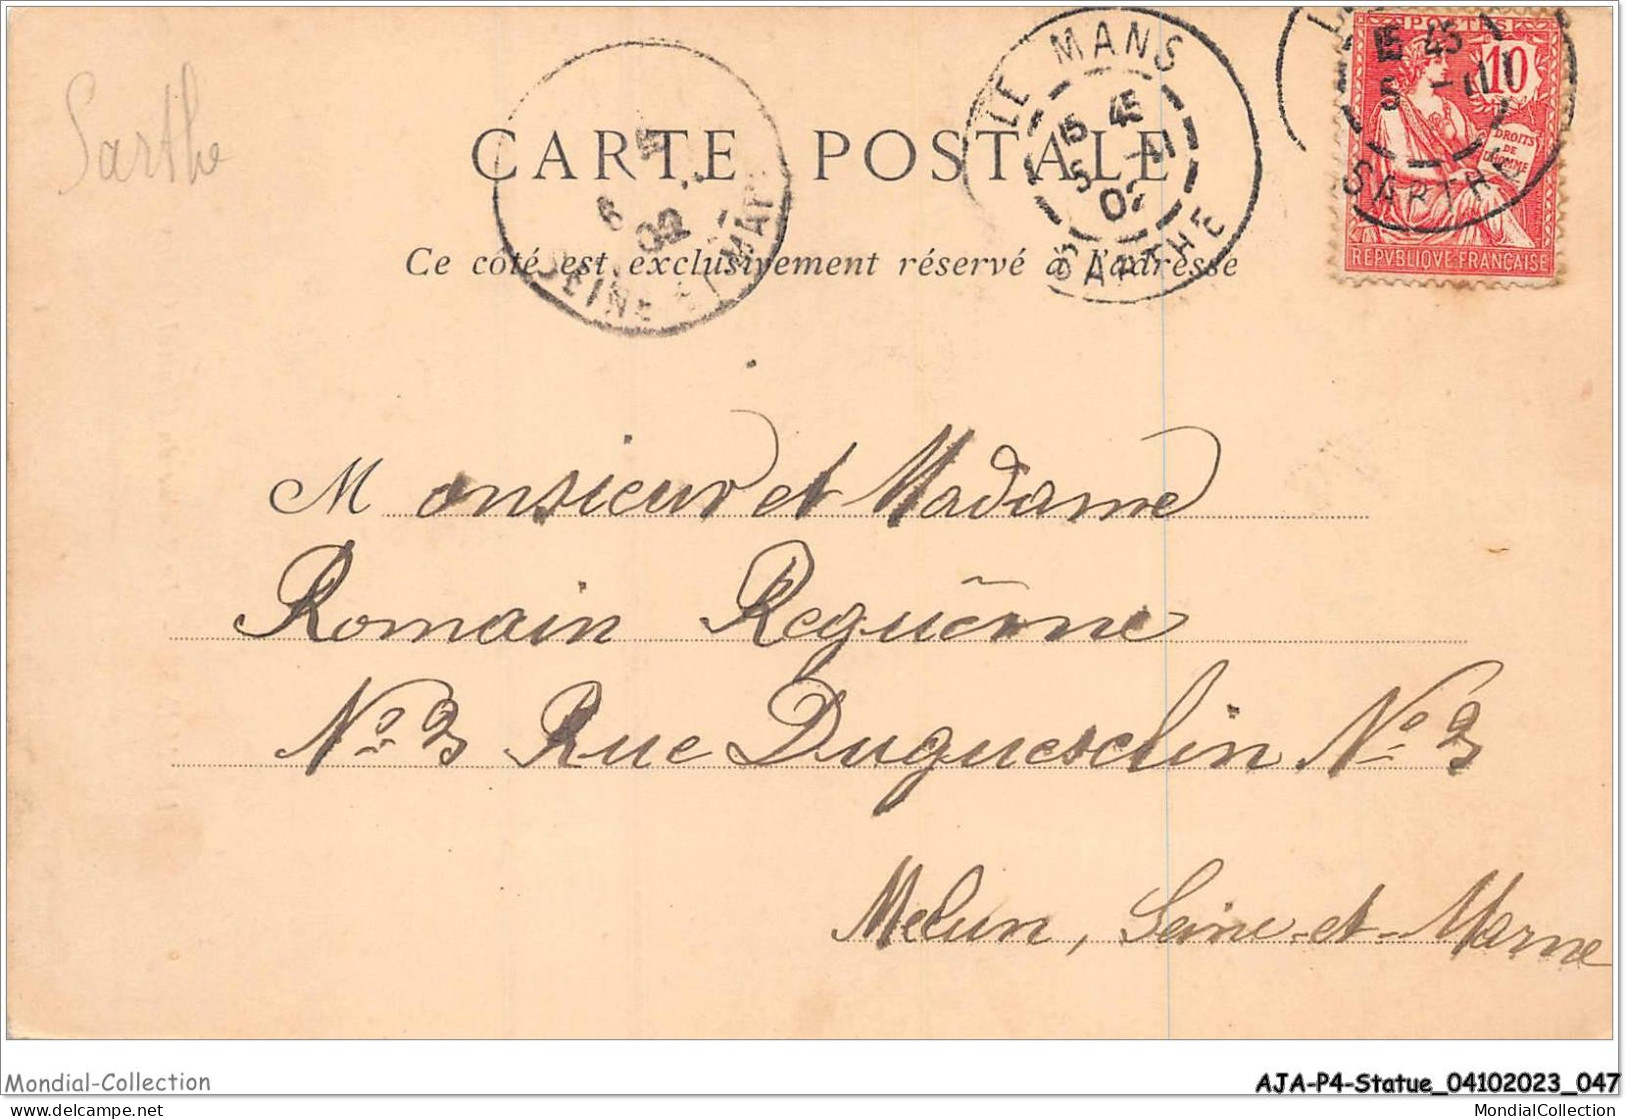 Sarthe
CARTE POSTALE
Ce côté est exclusivement réservé à l'adresse
LE MANS
15 45
5 -11
02
SARTHE
6
02
SEINE ET MAR
POSTES
10
DROITS
DE
L'HOMME
REPVBLIQVE FRANÇAISE
15 45
5 -11
SARTHE
Monsieur et Madame
Romain Reguërne
No 3 Rue Duguesclin No 3
Melun, Seine-et-Marne
Mondial-Collection
AJA-P4-Statue_04102023_047
delcampe.net
MondialCollection